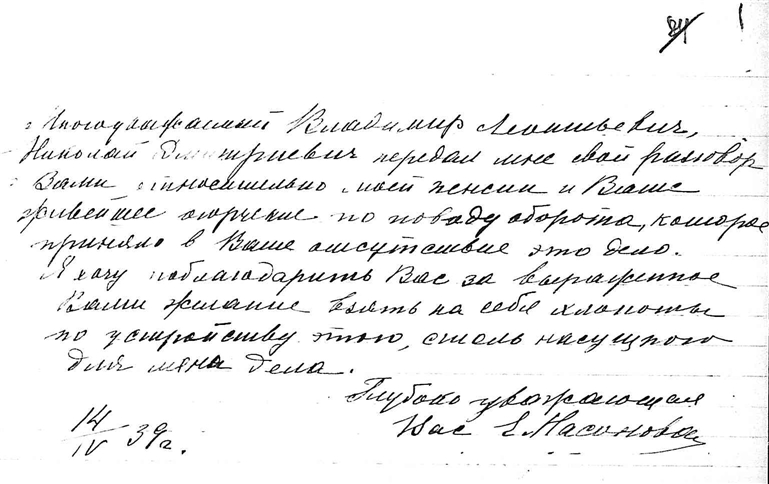 24 1
Многоуважаемый Владимир Леонтьевич,
Николай Дмитриевич передал мне свой разговор
Вами относительно моей пенсии и Ваше
живейшее огорчение по поводу оборота, которое
приняло в Ваше отсутствие это дело.
Я хочу поблагодарить Вас за выраженное
Вами желание взять на себя хлопоты
по устройству этого, столь насущного
для меня дела.
Глубоко уважающая
Вас Е. Масонова
14/IV 39 г.